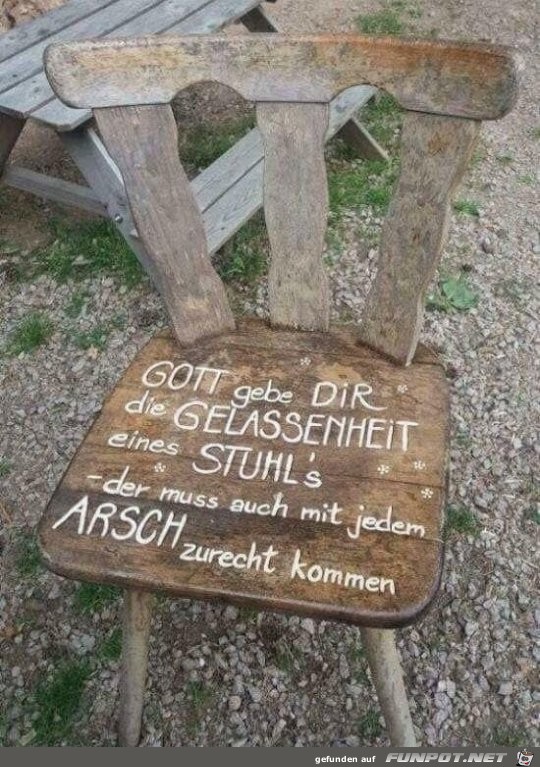 GOTT gebe DiR
die GELASSENHEiT
eines STUHL's
-der muss auch mit jedem
ARSCH zurecht kommen
gefunden auf FUNPOT.NET